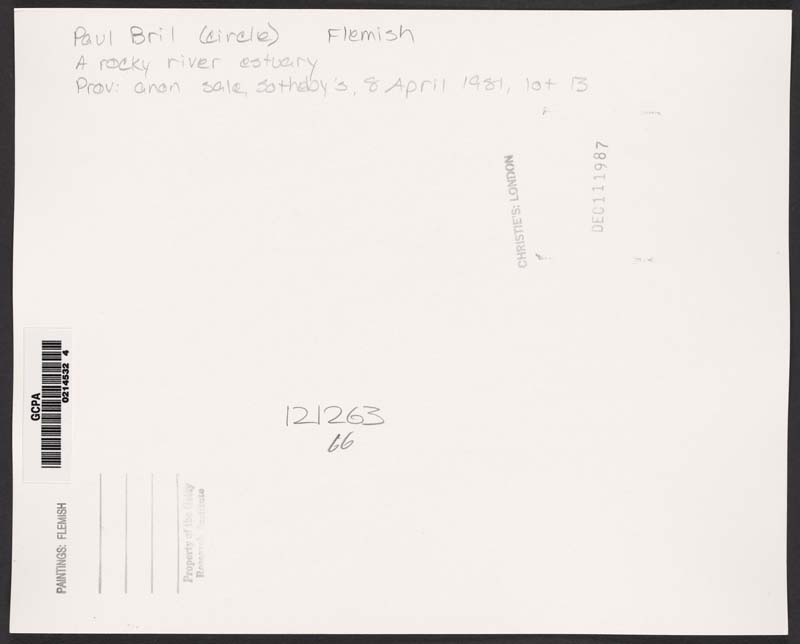 Paul Bril (circle) Flemish
A rocky river estuary
Prov: anon sale, Sotheby's, 8 April 1981, lot 13
CHRISTIE'S: LONDON
DEC 11 1987
GCPA
0214532 4
121263
66
PAINTINGS: FLEMISH
Property of the Getty
Research Institute